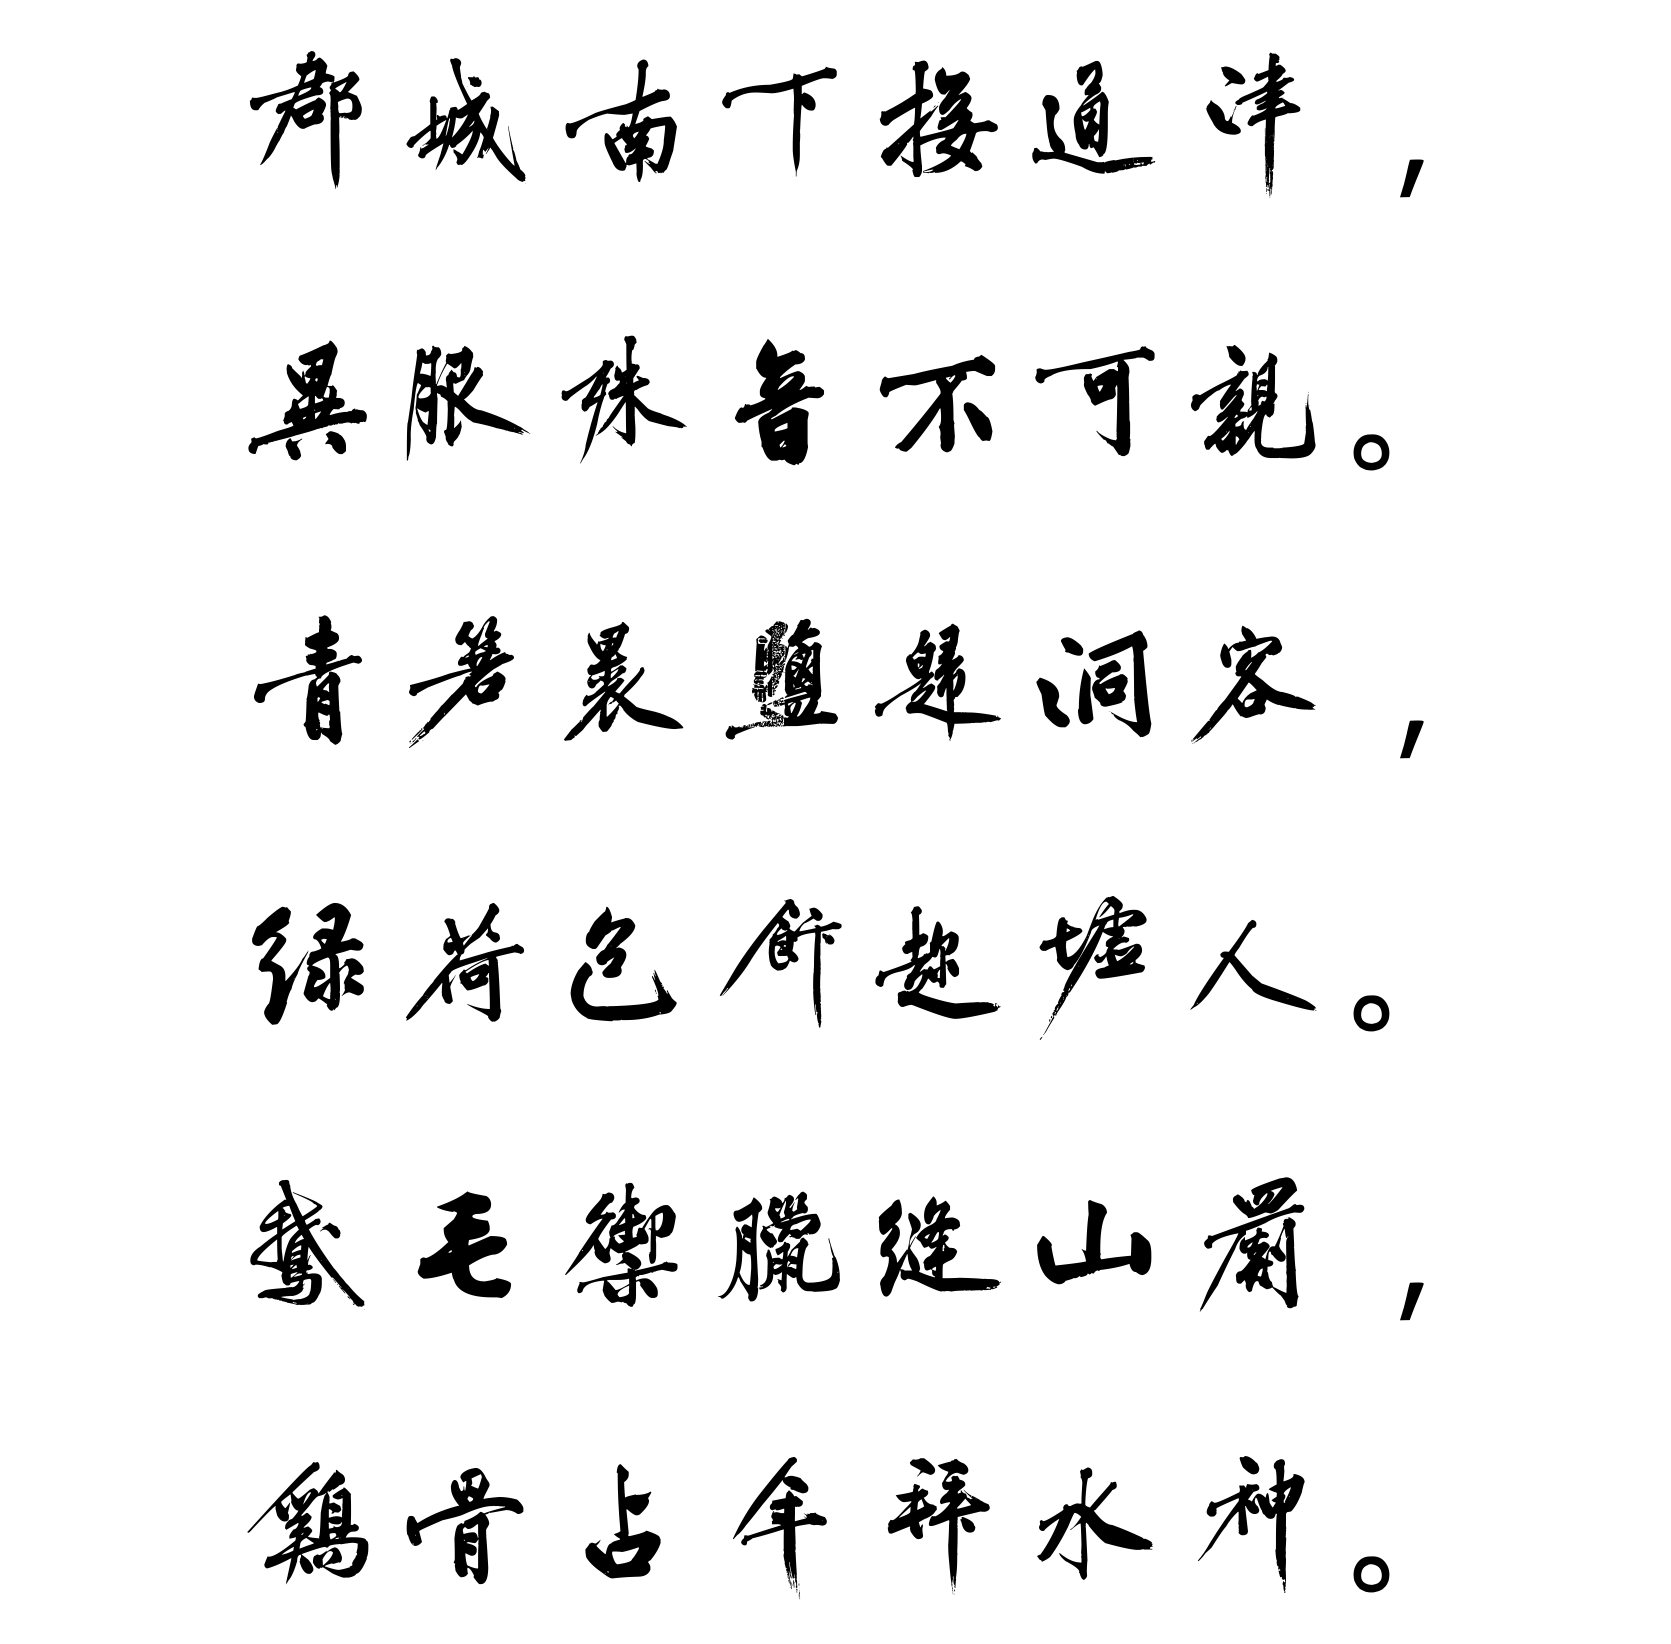 郡城南下接通津,
異服殊音不可親。
青箬裹鹽歸洞客,
绿荷包飰趂墟人。
鵝毛禦臘縫山罽,
鷄骨占年拜水神。